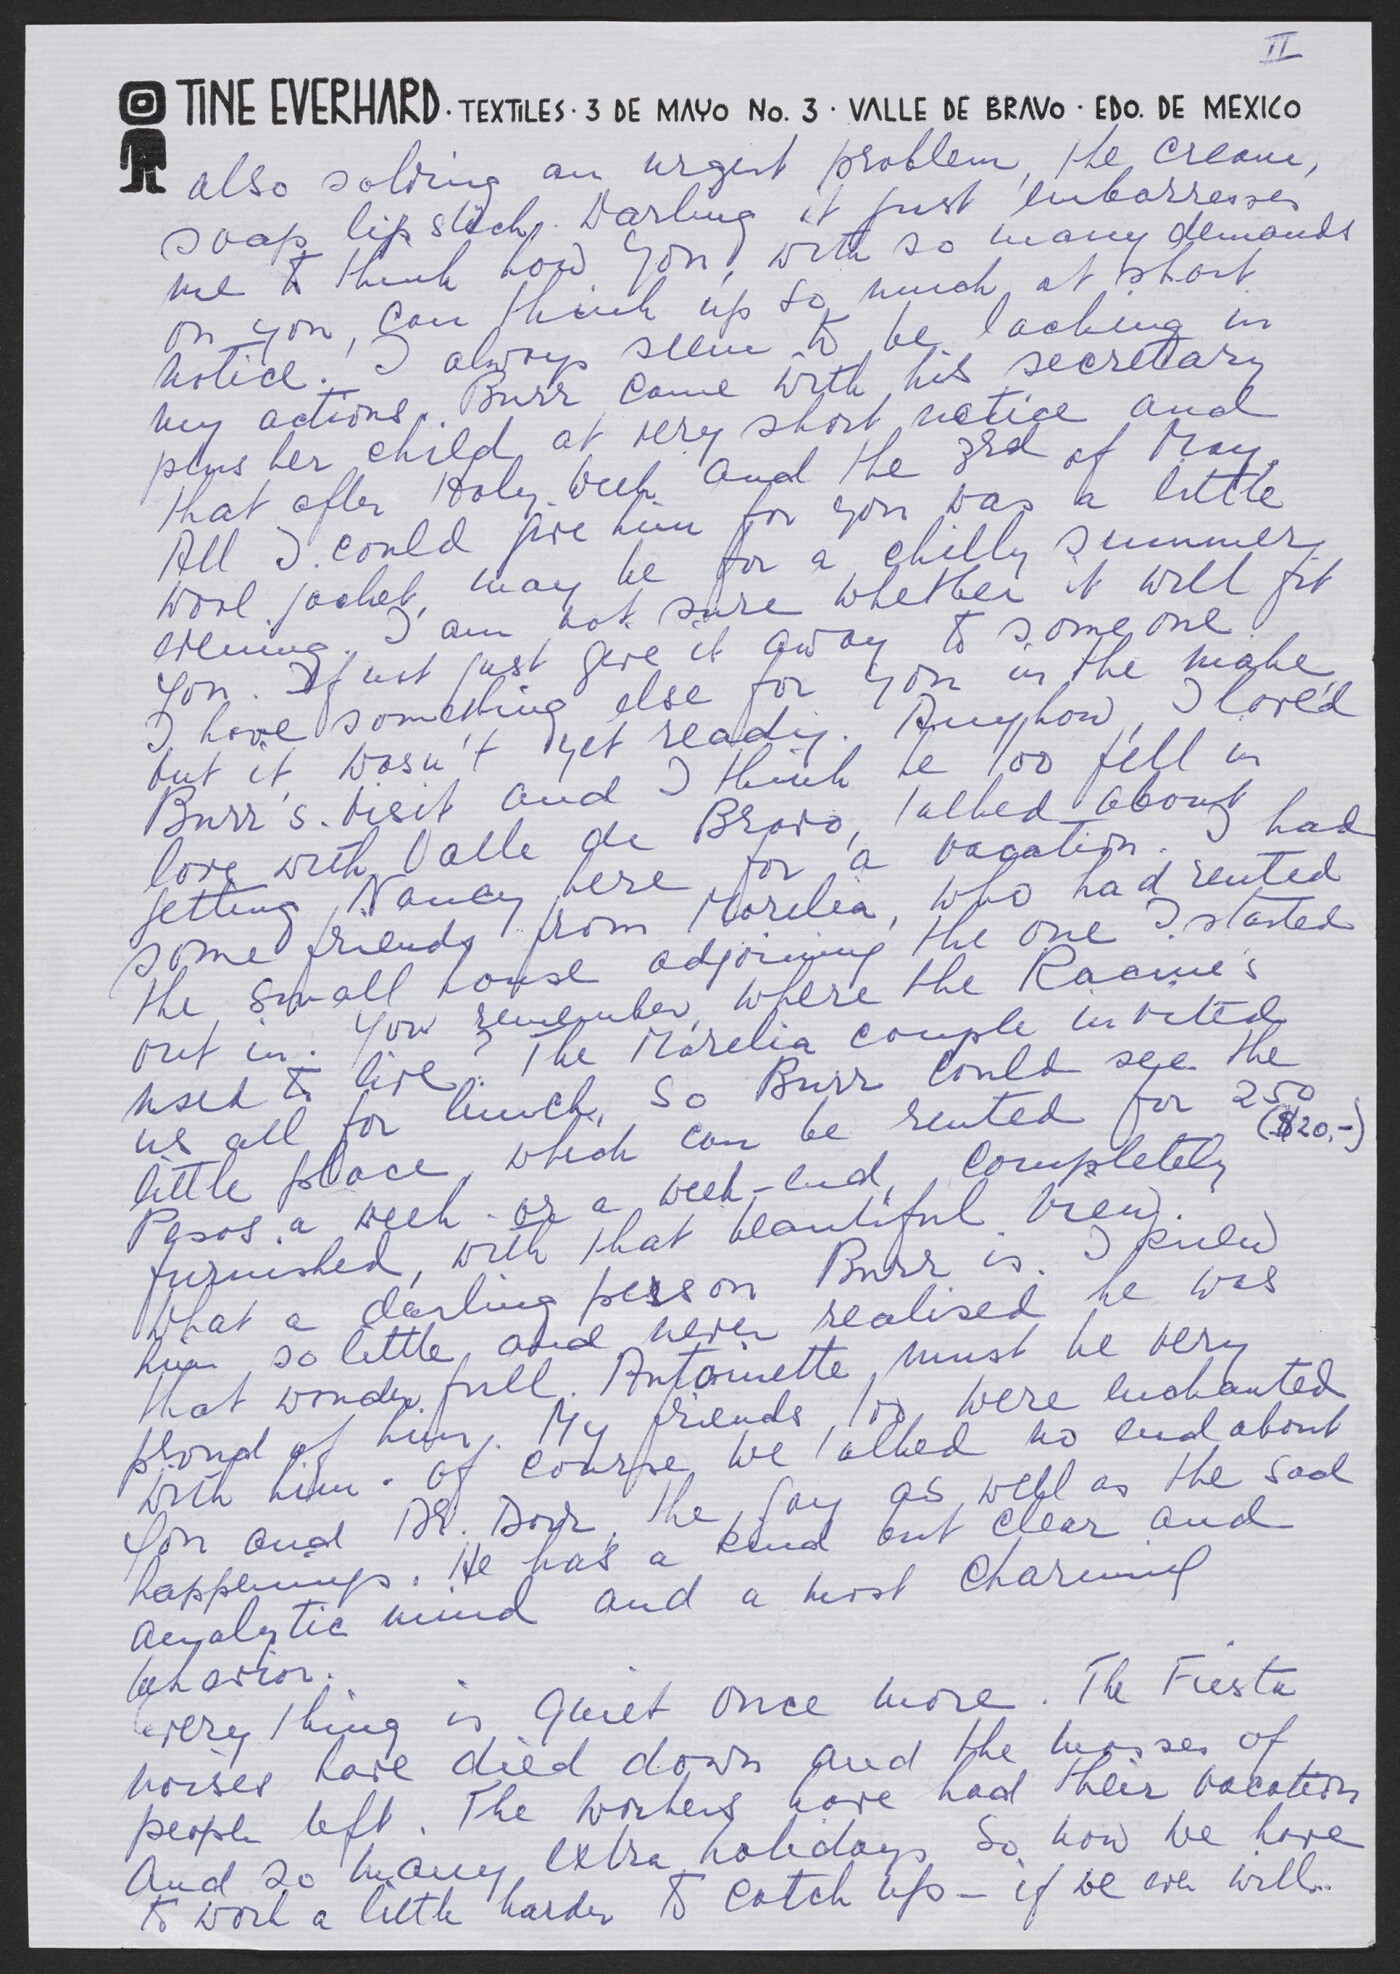 II
TINE EVERHARD · TEXTILES · 3 DE MAYO No. 3 · VALLE DE BRAVO · EDO. DE MEXICO
also solving an urgent problem, the cream,
soap, lipstick. Darling it just embarresses
me to think how you, with so many demands
on you, can think up so much at short
notice. I always seem to be lacking in
my actions. Burr came with his secretary
plus her child at very short notice and
that after Holy Week and the 3rd of May.
All I could give him for you was a little
wool jacket, may be for a chilly summer
evening. I am not sure whether it will fit
you. If not just give it away to someone.
I have something else for you in the make,
but it wasn't yet ready. Anyhow, I loved
Burr's visit and I think he too fell in
love with Valle de Bravo, talked about
getting Nancy here for a vacation. I had
some friends from Morelia, who had rented
the small house adjoining the one I started
out in. You remember, where the Racine's
used to live? The Morelia couple invited
us all for lunch, so Burr could see the
little place, which can be rented for 250
($20.-)
Pesos a week - or a week-end, completely
furnished, with that beautiful view.
What a darling person Burr is. I knew
him so little and never realised he was
that wonderfull. Antoinette must be very
proud of him. My friends too were enchanted
with him. Of course we talked no end about
you and Dr. Dorr, the gay as well as the sad
happenings. He has a kind but clear and
analytic mind and a most charming
behavior.
Everything is quiet once more. The Fiesta
noises have died down and the masses of
people left. The workers have had their vacation
and so many extra holidays. So now we have
to work a little harder to catch up - if we ever will..